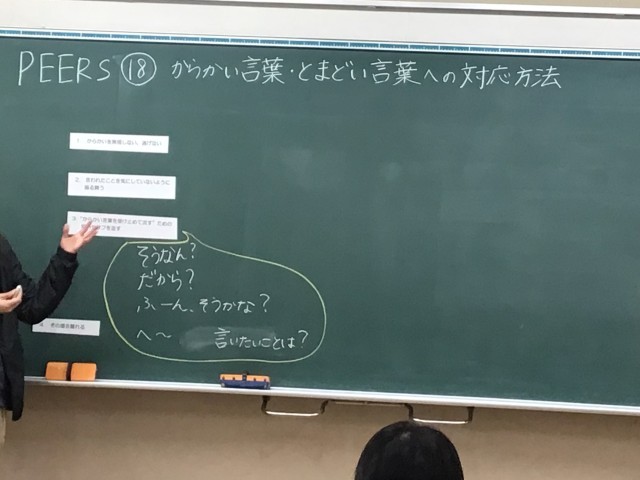 PEERS ⑱ からかい言葉・とまどい言葉への対応方法
1. からかいを無視しない、逃げない
2. 言われたことを気にしていないように
振る舞う
3. "からかい言葉を受け止めて流す"ための
を返す
そうなん?
だから?
ふーん、そうかな?
へ〜 言いたいことは?
4. その場を離れる